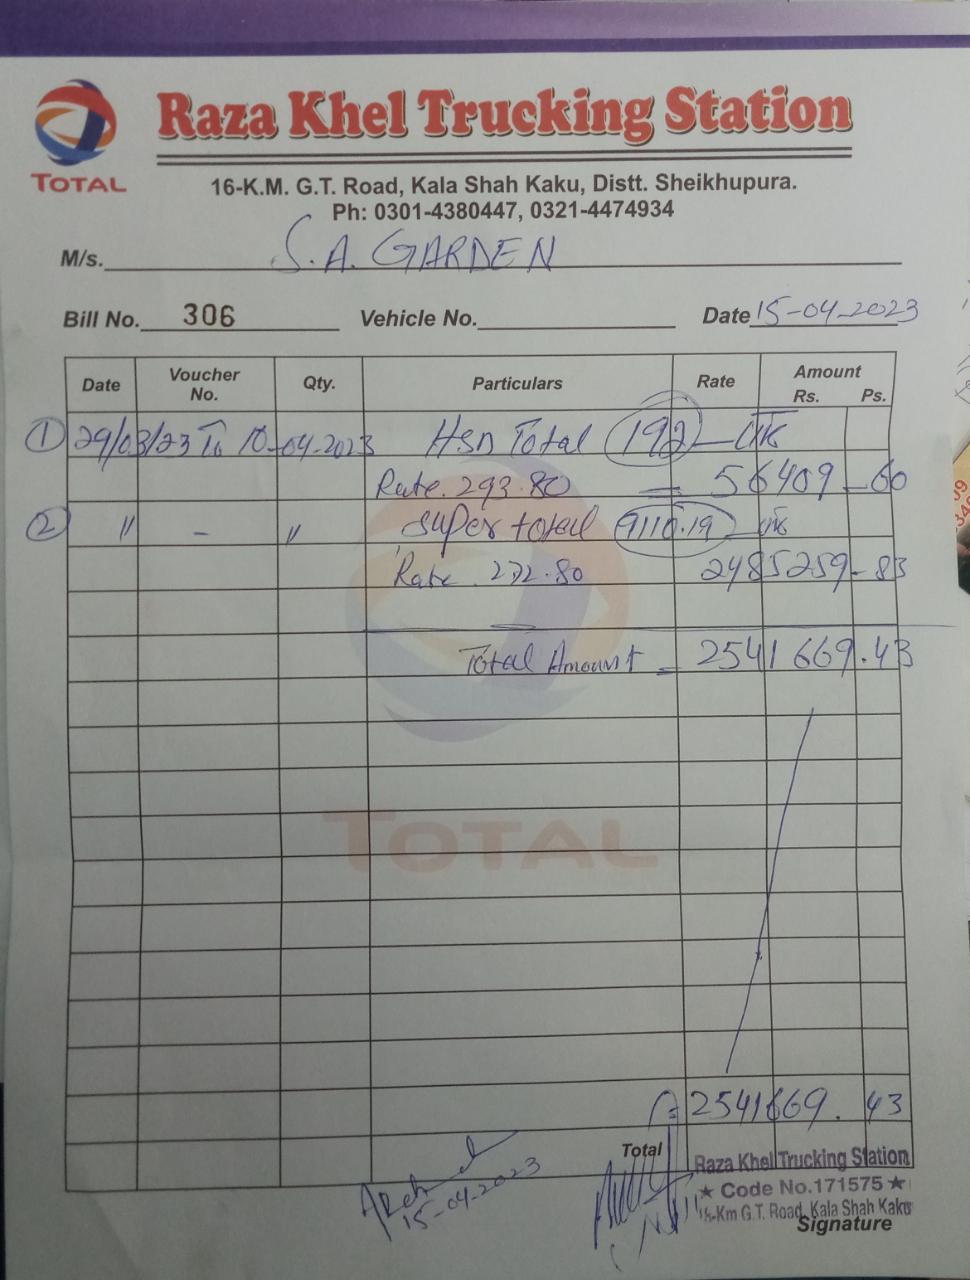 Raza Khel Trucking Station
TOTAL
16-K.M. G.T. Road, Kala Shah Kaku, Distt. Sheikhupura.
Ph: 0301-4380447, 0321-4474934
M/s. S.A. GARDEN
Bill No. 306 Vehicle No. Date 15-04-2023
Date Voucher No. Qty. Particulars Rate Amount Rs. Ps.
① 29/03/23 To 10-04-2023 HSD Total 192
Rate. 293.80 = 56409-60
② " - " Super total 9110.19
Rate. 272.80 2485259-83
Total Amount = 2541669.43
TOTAL
2541669. 43
Total
15-04-2023
Raza Khel Trucking Station
★ Code No.171575 ★
16-Km G.T. Road, Kala Shah Kaku
Signature